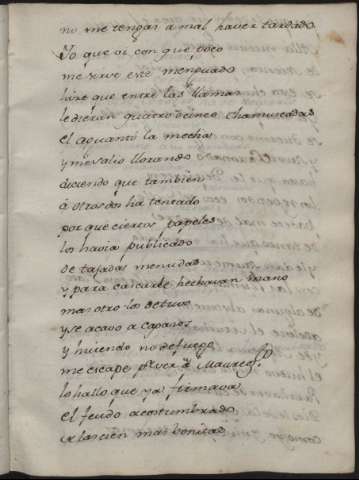 no me tengas a mal haver tardado
Yo que vi con que poco
me sirve este menguado
hize que entre las llamas
le dieran quatro o cinco chamuscadas
el aguantó la mecha
y me salio llorando
diciendo que tambien
á otros dos ha tentado
por que ciertos papeles
los havia publicado
de tajadas menudas
y para hechavan mano
mas otro los detuvo
y se acavo a capazos
y huiendo no de fuego
me escape p.r ver á Mauregt.o
lo hallo que ya firmava
el feudo acostumbrado
a las cien mas bonitas